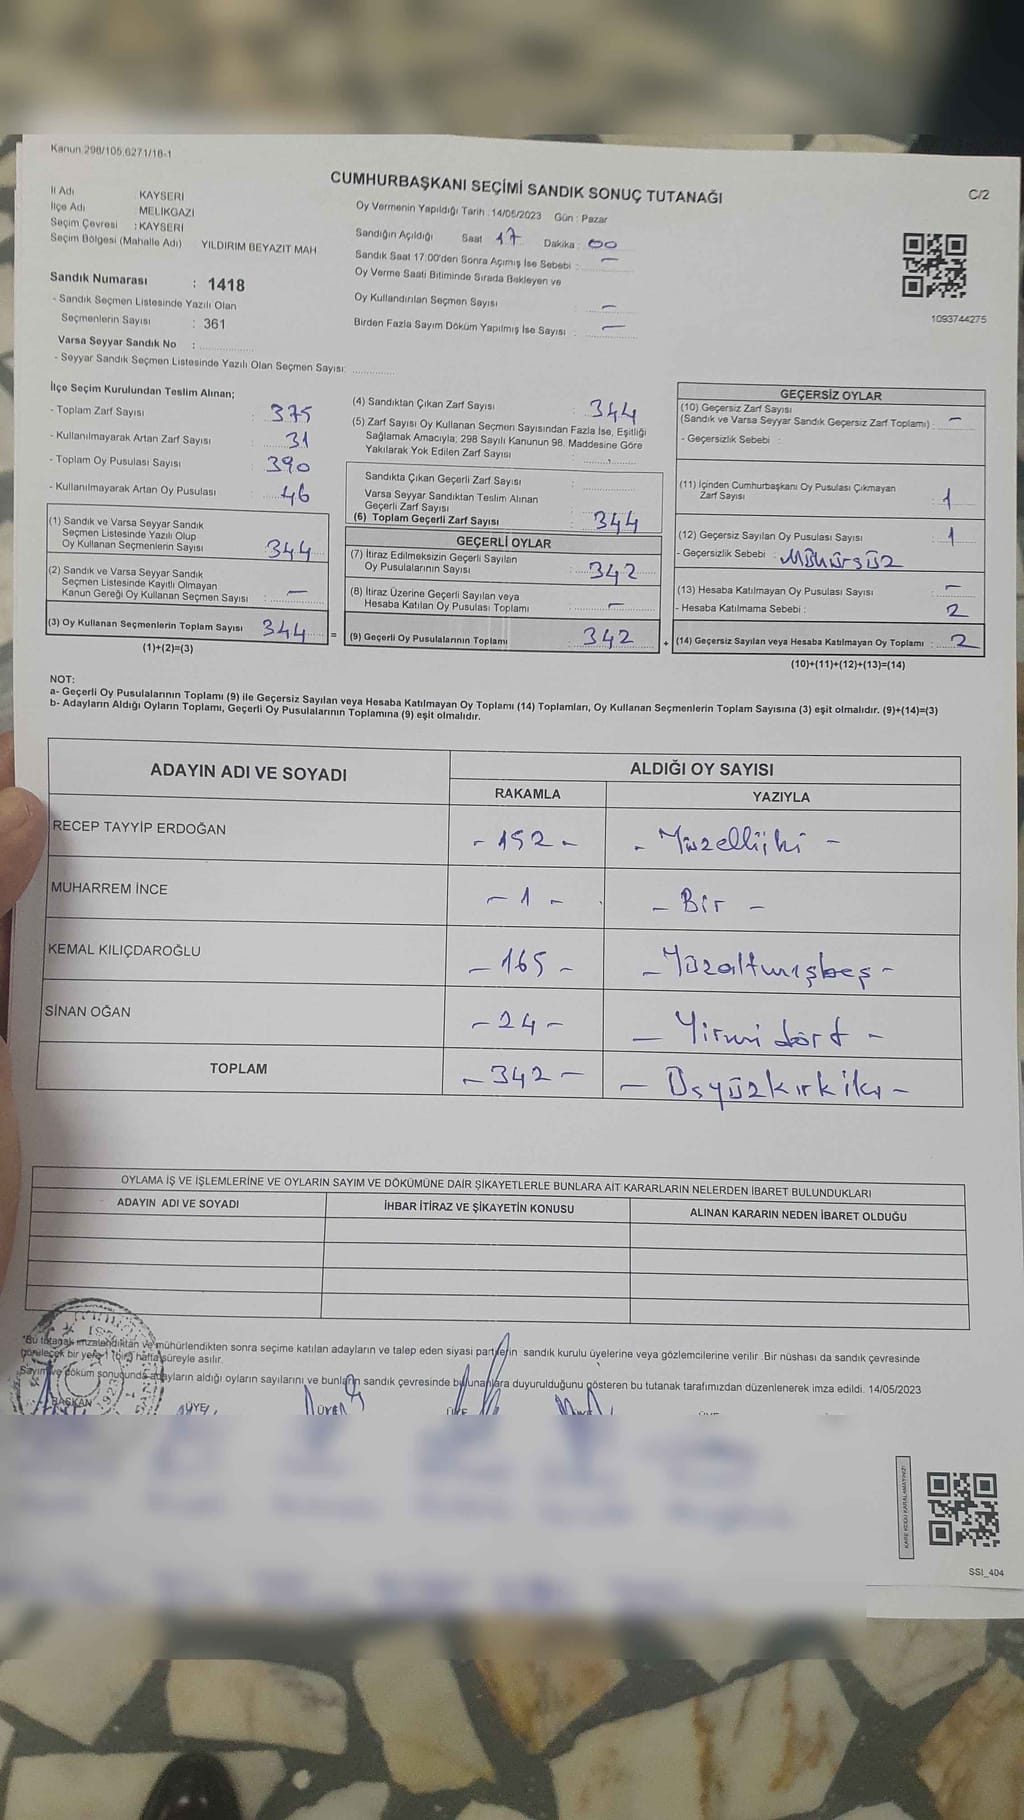 Kanun.298/105,6271/18-1
CUMHURBAŞKANI SEÇİMİ SANDIK SONUÇ TUTANAĞI
C/2
İl Adı : KAYSERİ
İlçe Adı : MELİKGAZİ
Seçim Çevresi : KAYSERİ
Seçim Bölgesi (Mahalle Adı) YILDIRIM BEYAZIT MAH
Sandık Numarası : 1418
- Sandık Seçmen Listesinde Yazılı Olan
Seçmenlerin Sayısı : 361
Varsa Seyyar Sandık No :
- Seyyar Sandık Seçmen Listesinde Yazılı Olan Seçmen Sayısı:
Oy Vermenin Yapıldığı Tarih : 14/05/2023 Gün : Pazar
Sandığın Açıldığı Saat 17 Dakika : 00
Sandık Saat 17:00'den Sonra Açımış İse Sebebi : -
Oy Verme Saati Bitiminde Sırada Bekleyen ve
Oy Kullandırılan Seçmen Sayısı : -
Birden Fazla Sayım Döküm Yapılmış İse Sayısı : -
1093744275
İlçe Seçim Kurulundan Teslim Alınan;
- Toplam Zarf Sayısı : 375
- Kullanılmayarak Artan Zarf Sayısı : 31
- Toplam Oy Pusulası Sayısı : 390
- Kullanılmayarak Artan Oy Pusulası : 46
(1) Sandık ve Varsa Seyyar Sandık
Seçmen Listesinde Yazılı Olup
Oy Kullanan Seçmenlerin Sayısı : 344
(2) Sandık ve Varsa Seyyar Sandık
Seçmen Listesinde Kayıtlı Olmayan
Kanun Gereği Oy Kullanan Seçmen Sayısı : -
(3) Oy Kullanan Seçmenlerin Toplam Sayısı : 344 =
(1)+(2)=(3)
(4) Sandıktan Çıkan Zarf Sayısı : 344
(5) Zarf Sayısı Oy Kullanan Seçmen Sayısından Fazla İse, Eşitliği
Sağlamak Amacıyla; 298 Sayılı Kanunun 98. Maddesine Göre
Yakılarak Yok Edilen Zarf Sayısı :
Sandıkta Çıkan Geçerli Zarf Sayısı :
Varsa Seyyar Sandıktan Teslim Alınan
Geçerli Zarf Sayısı :
(6) Toplam Geçerli Zarf Sayısı : 344
GEÇERLİ OYLAR
(7) İtiraz Edilmeksizin Geçerli Sayılan
Oy Pusulalarının Sayısı : 342
(8) İtiraz Üzerine Geçerli Sayılan veya
Hesaba Katılan Oy Pusulası Toplamı : -
(9) Geçerli Oy Pusulalarının Toplamı : 342 +
GEÇERSİZ OYLAR
(10) Geçersiz Zarf Sayısı
(Sandık ve Varsa Seyyar Sandık Geçersiz Zarf Toplamı) : -
- Geçersizlik Sebebi :
(11) İçinden Cumhurbaşkanı Oy Pusulası Çıkmayan
Zarf Sayısı : 1
(12) Geçersiz Sayılan Oy Pusulası Sayısı : 1
- Geçersizlik Sebebi : Mühürsüz
(13) Hesaba Katılmayan Oy Pusulası Sayısı : -
- Hesaba Katılmama Sebebi : 2
(14) Geçersiz Sayılan veya Hesaba Katılmayan Oy Toplamı : 2
(10)+(11)+(12)+(13)=(14)
NOT:
a- Geçerli Oy Pusulalarının Toplamı (9) ile Geçersiz Sayılan veya Hesaba Katılmayan Oy Toplamı (14) Toplamları, Oy Kullanan Seçmenlerin Toplam Sayısına (3) eşit olmalıdır. (9)+(14)=(3)
b- Adayların Aldığı Oyların Toplamı, Geçerli Oy Pusulalarının Toplamına (9) eşit olmalıdır.
ADAYIN ADI VE SOYADI
ALDIĞI OY SAYISI
RAKAMLA YAZIYLA
RECEP TAYYİP ERDOĞAN - 152 - - Yüzelliiki -
MUHARREM İNCE - 1 - - Bir -
KEMAL KILIÇDAROĞLU - 165 - - Yüzaltmışbeş -
SİNAN OĞAN - 24 - - Yirmi dört -
TOPLAM - 342 - - Üçyüzkırkiki -
OYLAMA İŞ VE İŞLEMLERİNE VE OYLARIN SAYIM VE DÖKÜMÜNE DAİR ŞİKAYETLERLE BUNLARA AİT KARARLARIN NELERDEN İBARET BULUNDUKLARI
ADAYIN ADI VE SOYADI İHBAR İTİRAZ VE ŞİKAYETİN KONUSU ALINAN KARARIN NEDEN İBARET OLDUĞU
*Bu tutanak imzalandıktan ve mühürlendikten sonra seçime katılan adayların ve talep eden siyasi partilerin sandık kurulu üyelerine veya gözlemcilerine verilir .Bir nüshası da sandık çevresinde
görülecek bir yere 1 (bir) hafta süreyle asılır.
Sayım ve döküm sonucunda adayların aldığı oyların sayılarını ve bunların sandık çevresinde bulunanlara duyurulduğunu gösteren bu tutanak tarafımızdan düzenlenerek imza edildi. 14/05/2023
BAŞKAN ÜYE ÜYE
KARE KODU KARALAMAYINIZ!
SSİ_404